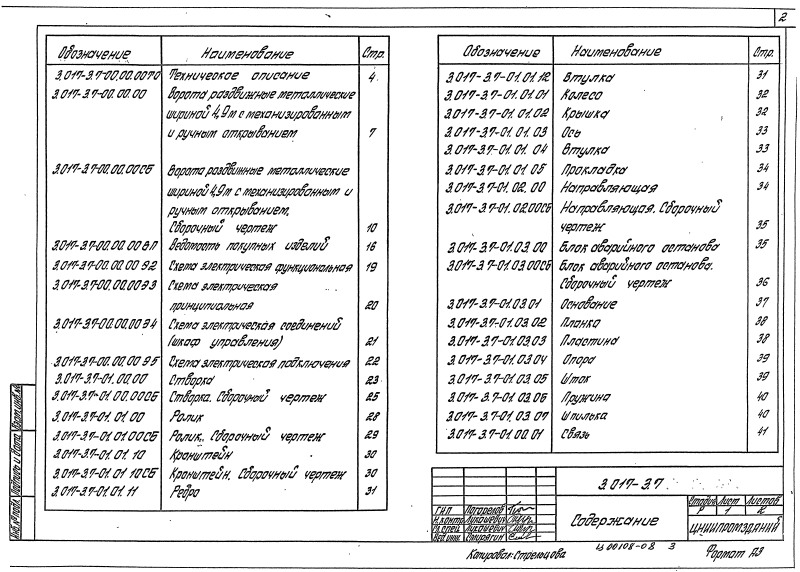 2
Обозначение Наименование Стр.
3.017-3.7-00.00.00ТО Техническое описание 4
3.017-3.7-00.00.00 Ворота раздвижные металлические
шириной 4,9м с механизированным
и ручным открыванием 7
3.017-3.7-00.00.00СБ Ворота раздвижные металлические
шириной 4,9м с механизированным и
ручным открыванием.
Сборочный чертеж 10
3.017-3.7-00.00.00ВП Ведомость покупных изделий 16
3.017-3.7-00.00.00Э2 Схема электрическая функциональная 19
3.017-3.7-00.00.00Э3 Схема электрическая
принципиальная 20
3.017-3.7-00.00.00Э4 Схема электрическая соединений
(шкаф управления) 21
3.017-3.7-00.00.00Э5 Схема электрическая подключения 22
3.017-3.7-01.00.00 Створка 23
3.017-3.7-01.00.00СБ Створка. Сборочный чертеж 25
3.017-3.7-01.01.00 Ролик 28
3.017-3.7-01.01.00СБ Ролик. Сборочный чертеж 29
3.017-3.7-01.01.10 Кронштейн 30
3.017-3.7-01.01.10СБ Кронштейн. Сборочный чертеж 30
3.017-3.7-01.01.11 Ребро 31
Обозначение Наименование Стр.
3.017-3.7-01.01.12 Втулка 31
3.017-3.7-01.01.01 Колесо 32
3.017-3.7-01.01.02 Крышка 32
3.017-3.7-01.01.03 Ось 33
3.017-3.7-01.01.04 Втулка 33
3.017-3.7-01.01.05 Прокладка 34
3.017-3.7-01.02.00 Направляющая 34
3.017-3.7-01.02.00СБ Направляющая. Сборочный
чертеж 35
3.017-3.7-01.03.00 Блок аварийного останова 35
3.017-3.7-01.03.00СБ Блок аварийного останова.
Сборочный чертеж 36
3.017-3.7-01.03.01 Основание 37
3.017-3.7-01.03.02 Планка 38
3.017-3.7-01.03.03 Пластина 38
3.017-3.7-01.03.04 Опора 39
3.017-3.7-01.03.05 Шток 39
3.017-3.7-01.03.06 Пружина 40
3.017-3.7-01.03.07 Шпилька 40
3.017-3.7-01.00.01 Связь 41
Инв.№подл. Подпись и дата Взам.инв.№
3.017-3.7
ГИП
Н.контр. Лукашевич
Гл.спец. Лукашевич
Вед.инж.
Содержание
Стадия Лист Листов
Р 1 2
ЦНИИПРОМЗДАНИЙ
Копировал: Стрельцова ц.00108-08 3 Формат А3